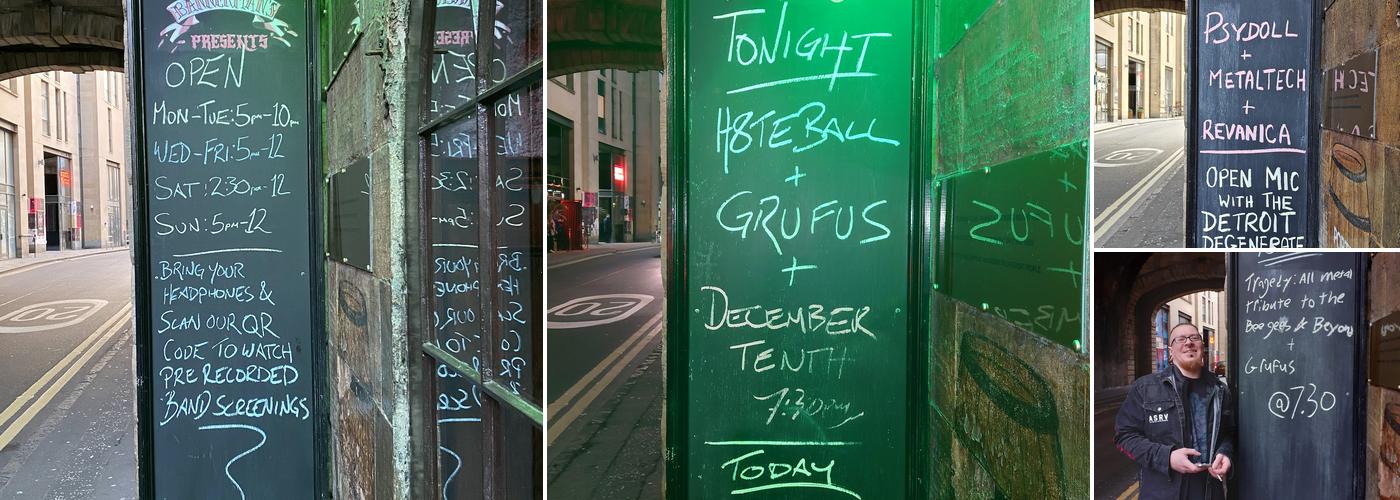 BANNERMANS
PRESENTS
OPEN
MON-TUE: 5pm-10pm
WED-FRI: 5pm-12
SAT: 2:30pm-12
SUN: 5pm-12
BRING YOUR
HEADPHONES &
SCAN OUR QR
CODE TO WATCH
PRE RECORDED
BAND SCREENINGS
20
TONIGHT
H8TEBALL
+
GRUFUS
+
DECEMBER
TENTH
7:30pm
TODAY
20
PSYDOLL
+
METALTECH
+
REVANICA
OPEN MIC
WITH THE
DETROIT
DEGENERATE
20
Tragedy: All metal
tribute to the
Bee gees & Beyon
+
Grufus
@7.30
ASRV